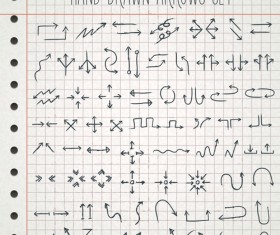 HAND DRAWN ARROWS SET